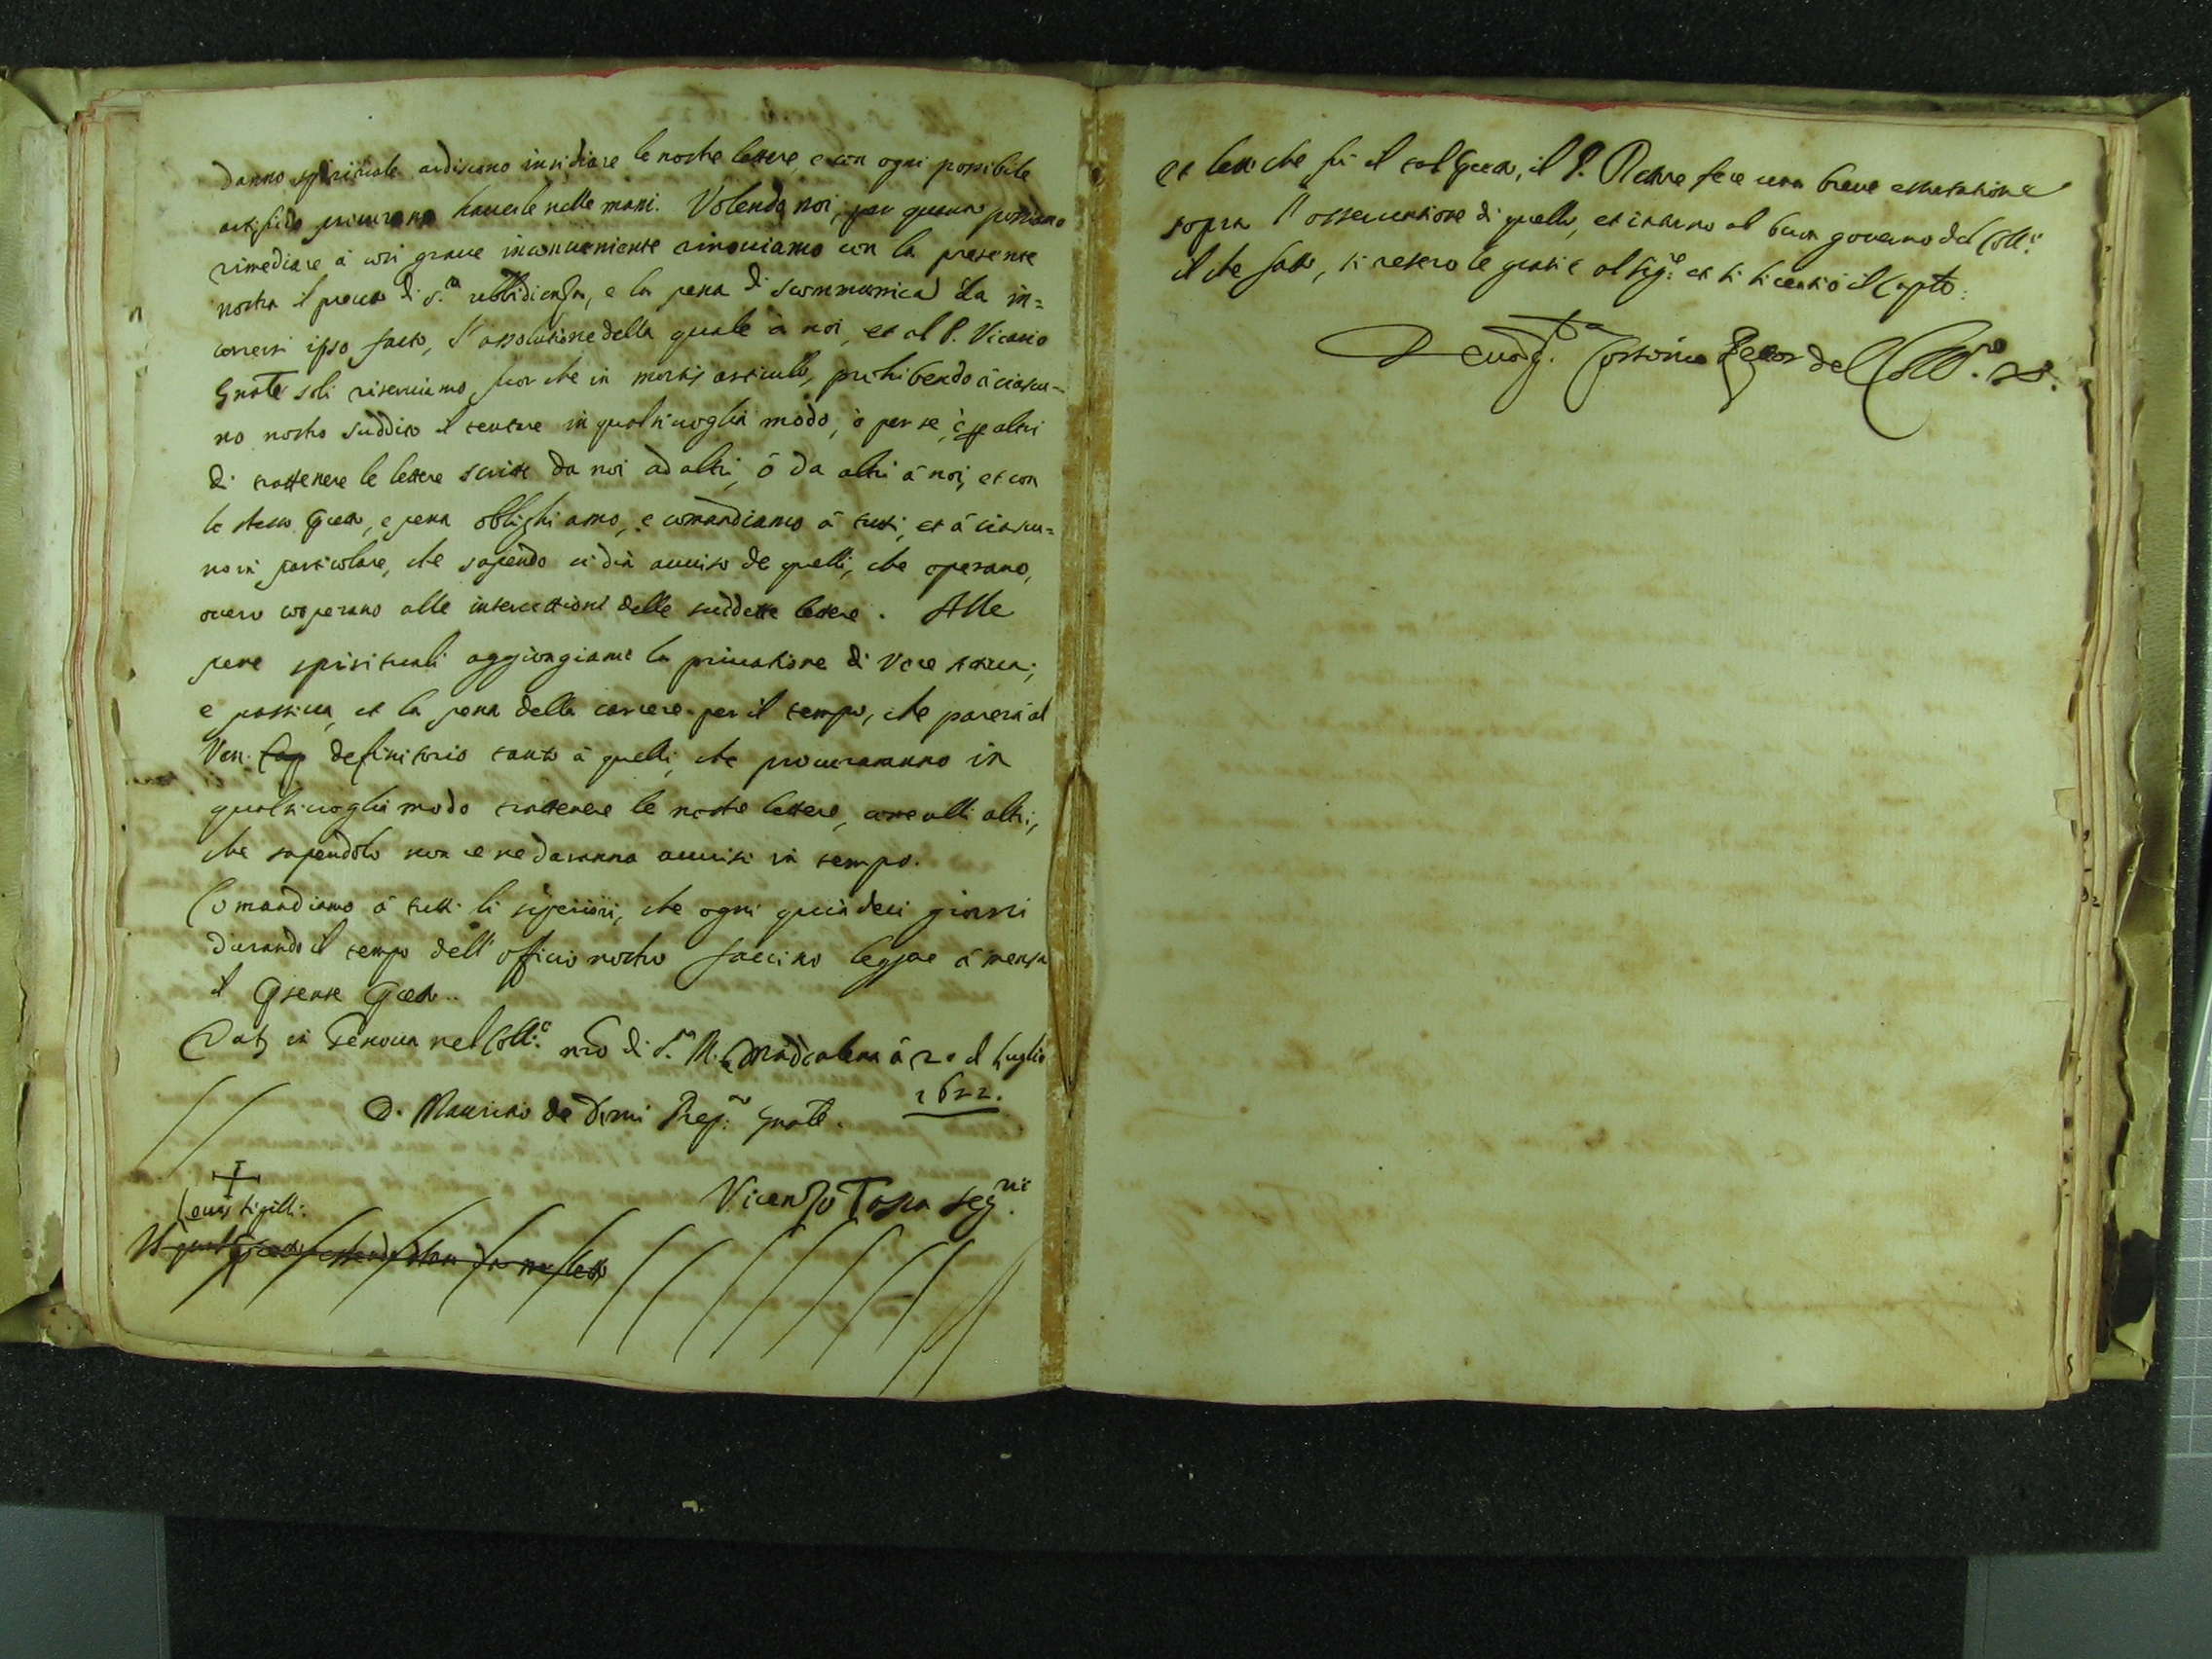 danno spirituale ardiscono insidiare le nostre lettere, e con ogni possibile
artificio procurano hauerle nelle mani. Volendo noi, per quanto possiamo
rimediare à cosi graue inconueniente rinouiamo con la presente
nostra il precetto di s.ta ubbidienza, e la pena di scommunica da in=
corrersi ipso facto, l'assolutione della quale à noi, et al P. Vicario
Gnãle soli riseruiamo, fuor che in mortis articulo, prohibendo à ciascu=
no nostro suddito il tentare in qualsiuoglia modo, ò per se, ò p altri
di trattenere le lettere scritte da noi ad altri, ò da altri à noi, et con
lo stesso pcetto, e pena oblighiamo, e comandiamo à tutti, et à ciascu=
no in particolare, che sapendo ci dia auuiso de quelli, che operano,
ouero cooperano alle intercettioni delle suddette lettere. Alle
pene spirituali aggiongiamo la priuatione di voce attiua,
e passiua, et la pena della carcere per il tempo, che parerà al
Ven. Cap definitorio tanto à quelli, che procuraranno in
qualsiuoglia modo trattenere le nostre lettere, come alli altri,
che sapendolo non ce ne daranno auuiso in tempo.
Comandiamo à tutti li superiori, che ogni quindeci giorni
durando il tempo dell' officio nostro faccino leggere à mensa
il psente pcetto..
Dat. in Genoua nel Coll.o nrõ di S.ta M. Madalena à 20 di Luglio
1622.
D. Mauritio de Domi Prep.to Gnãle.
+
Locus sigilli.
Vicenzo Tassa seg.rio
Il qual pcetto essendo stato da me letto
et letto che fu il tal pcetto, il P. Rettore fece una breue essortatione
sopra l'osseruatione di quello, et intorno al buon gouerno del Coll.o
il che fatto, si resero le gratie al Sig.re et si licentiò il Capto.
D. Rettor del Coll.o